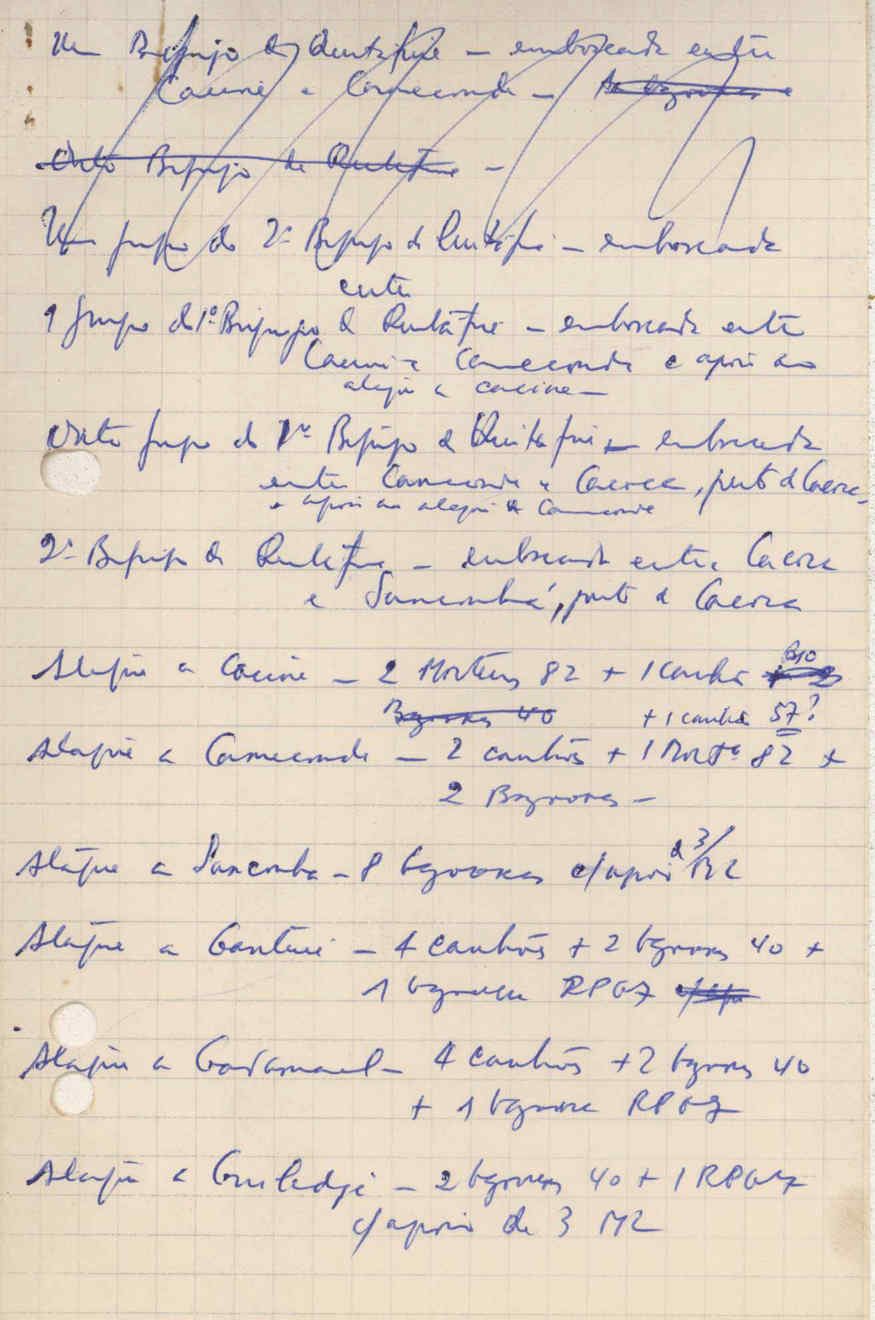 Um Bigrupo de Quitáfine — emboscada entre
Cacine e Cameconde —
Outro Bigrupo de Quitáfine —
Um grupo do 2º Bigrupo de Quitáfine — emboscada
entre
1 grupo do 1º Bigrupo de Quitáfine — emboscada entre
Cacine e Cameconde e apoio ao
ataque a cacine —
Outro grupo do 1º Bigrupo de Quitáfine — emboscada
entre Cameconde e Cacoca, perto de Cacoca
e apoio ao ataque a Cameconde
2º Bigrupo de Quitáfine — emboscada entre Cacoca
e Sanconhá, perto de Cacoca
Ataque a Cacine — 2 Morteiros 82 + 1 canhão B10
Bazookas 40 + 1 canhão 57?
Ataque a Cameconde — 2 canhões + 1 Morteiro 82 +
2 Bazookas —
Ataque a Sanconha — 8 bazookas c/apoio de 3/M2
Ataque a Ganturé — 4 canhões + 2 bazookas 40 +
1 bazooka RPG7
Ataque a Gadamael — 4 canhões + 2 bazookas 40
+ 1 bazooka RPG7
Ataque a Guiledje — 2 bazookas 40 + 1 RPG7
c/apoio de 3 M2